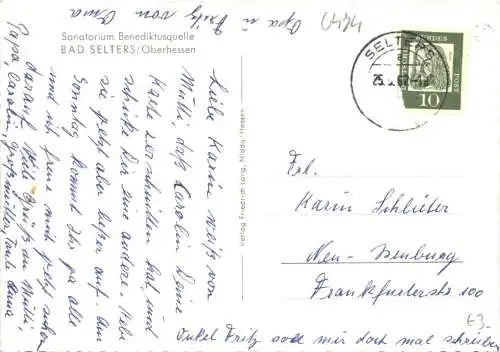 Opa u
Fritz von Oma
Sanatorium Benediktusquelle
BAD SELTERS/Oberhessen
Liebe Karin weiß von
Mutti, daß Carolin Deine
Karte zerschnitten hat, und
schicke Dir eine andere. Habe
sie jetzt aber besser auf. Am
Sonntag kommt Ihr ja alle
und ich freue mich jetzt schon
darauf. Viele Grüße an Mutti,
Papa, Carolin, Großmutter, Tante Anna
Onkel Fritz soll mir doch mal schreiben
Verlag Friedrich Lang, Nidda/Hessen
SELTERS
BUNDES
POST
10
Frl.
Karin Schlüter
Neu-Isenburg
Frankfurterstr 100
£3.-